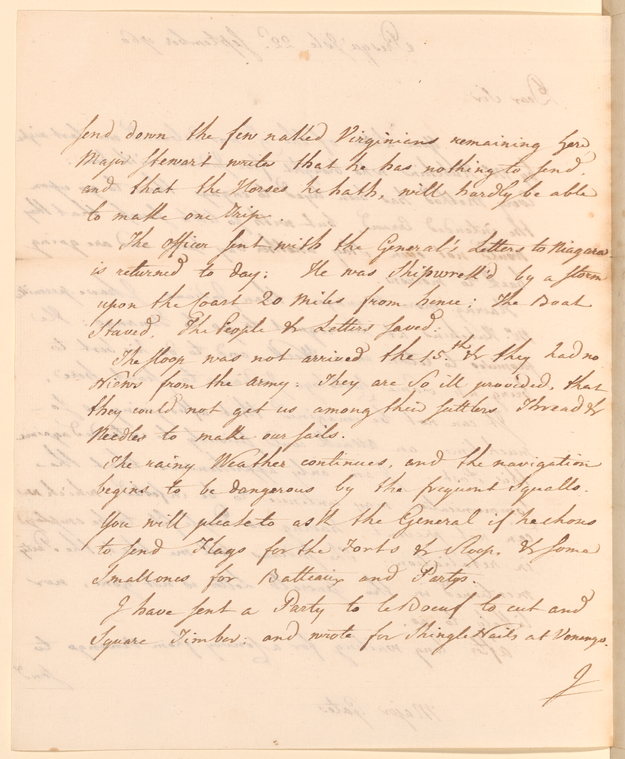 send down the few naked Virginians remaining here
Major Stewart writes that he has nothing to send,
and that the Horses he hath, will hardly be able
to make one Trip.
The officer sent with the General's Letters to Niagara
is returned to day: He was Shipwreck'd by a Storm
upon the Coast 20 Miles from hence; The Boat
Staved, The People & Letters saved:
The Sloop was not arrived the 15.th & they had no
News from the Army: They are so ill provided, that
they could not get us among their Suttlers Thread &
Needles to make our Sails.
The rainy Weather continues, and the navigation
begins to be dangerous by the frequent Squalls.
You will please to ask the General if he chous
to send Flags for the Forts & Sloop, & some
Small ones for Batteaux and Partys.
I have sent a Party to le Boeuf to cut and
Square Timber; and wrote for Shingle Nails at Venango.
I